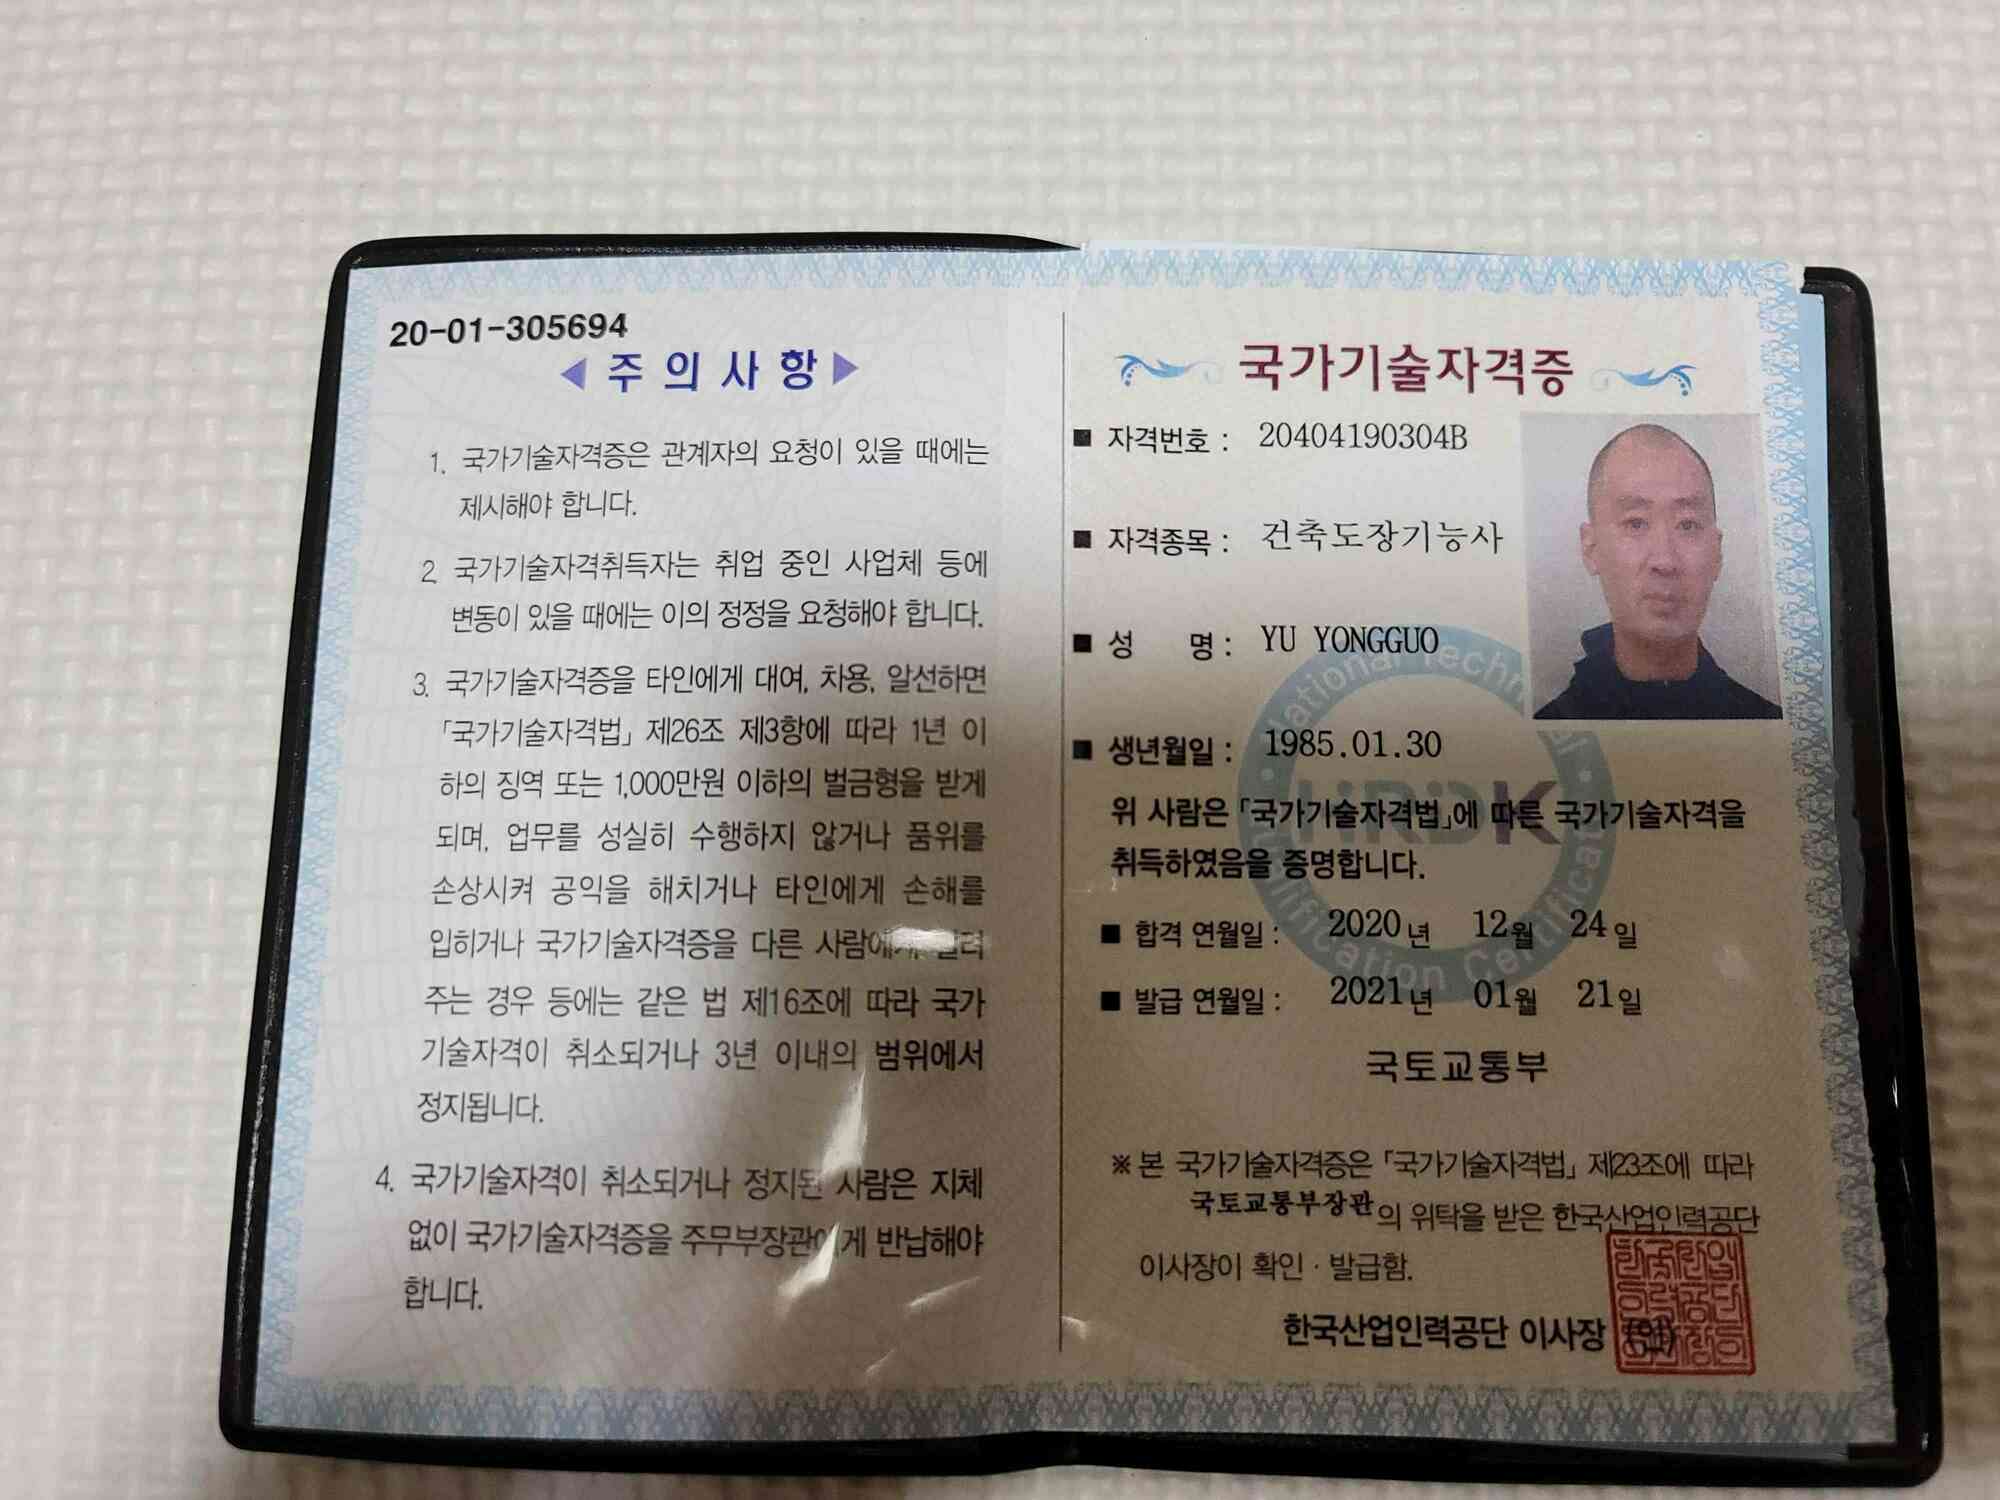 20-01-305694
◀ 주 의 사 항 ▶
1. 국가기술자격증은 관계자의 요청이 있을 때에는
제시해야 합니다.
2. 국가기술자격취득자는 취업 중인 사업체 등에
변동이 있을 때에는 이의 정정을 요청해야 합니다.
3. 국가기술자격증을 타인에게 대여, 차용, 알선하면
「국가기술자격법」 제26조 제3항에 따라 1년 이
하의 징역 또는 1,000만원 이하의 벌금형을 받게
되며, 업무를 성실히 수행하지 않거나 품위를
손상시켜 공익을 해치거나 타인에게 손해를
입히거나 국가기술자격증을 다른 사람에게
주는 경우 등에는 같은 법 제16조에 따라 국가
기술자격이 취소되거나 3년 이내의 범위에서
정지됩니다.
4. 국가기술자격이 취소되거나 정지된 사람은 지체
없이 국가기술자격증을 주무부장관에게 반납해야
합니다.
국가기술자격증
■ 자격번호 : 20404190304B
■ 자격종목 : 건축도장기능사
■ 성 명 : YU YONGGUO
■ 생년월일 : 1985.01.30
위 사람은 「국가기술자격법」에 따른 국가기술자격을
취득하였음을 증명합니다.
■ 합격 연월일 : 2020년 12월 24일
■ 발급 연월일 : 2021년 01월 21일
국토교통부
※ 본 국가기술자격증은 「국가기술자격법」 제23조에 따라
국토교통부장관의 위탁을 받은 한국산업인력공단
이사장이 확인·발급함.
한국산업인력공단 이사장 (인)
HRDK